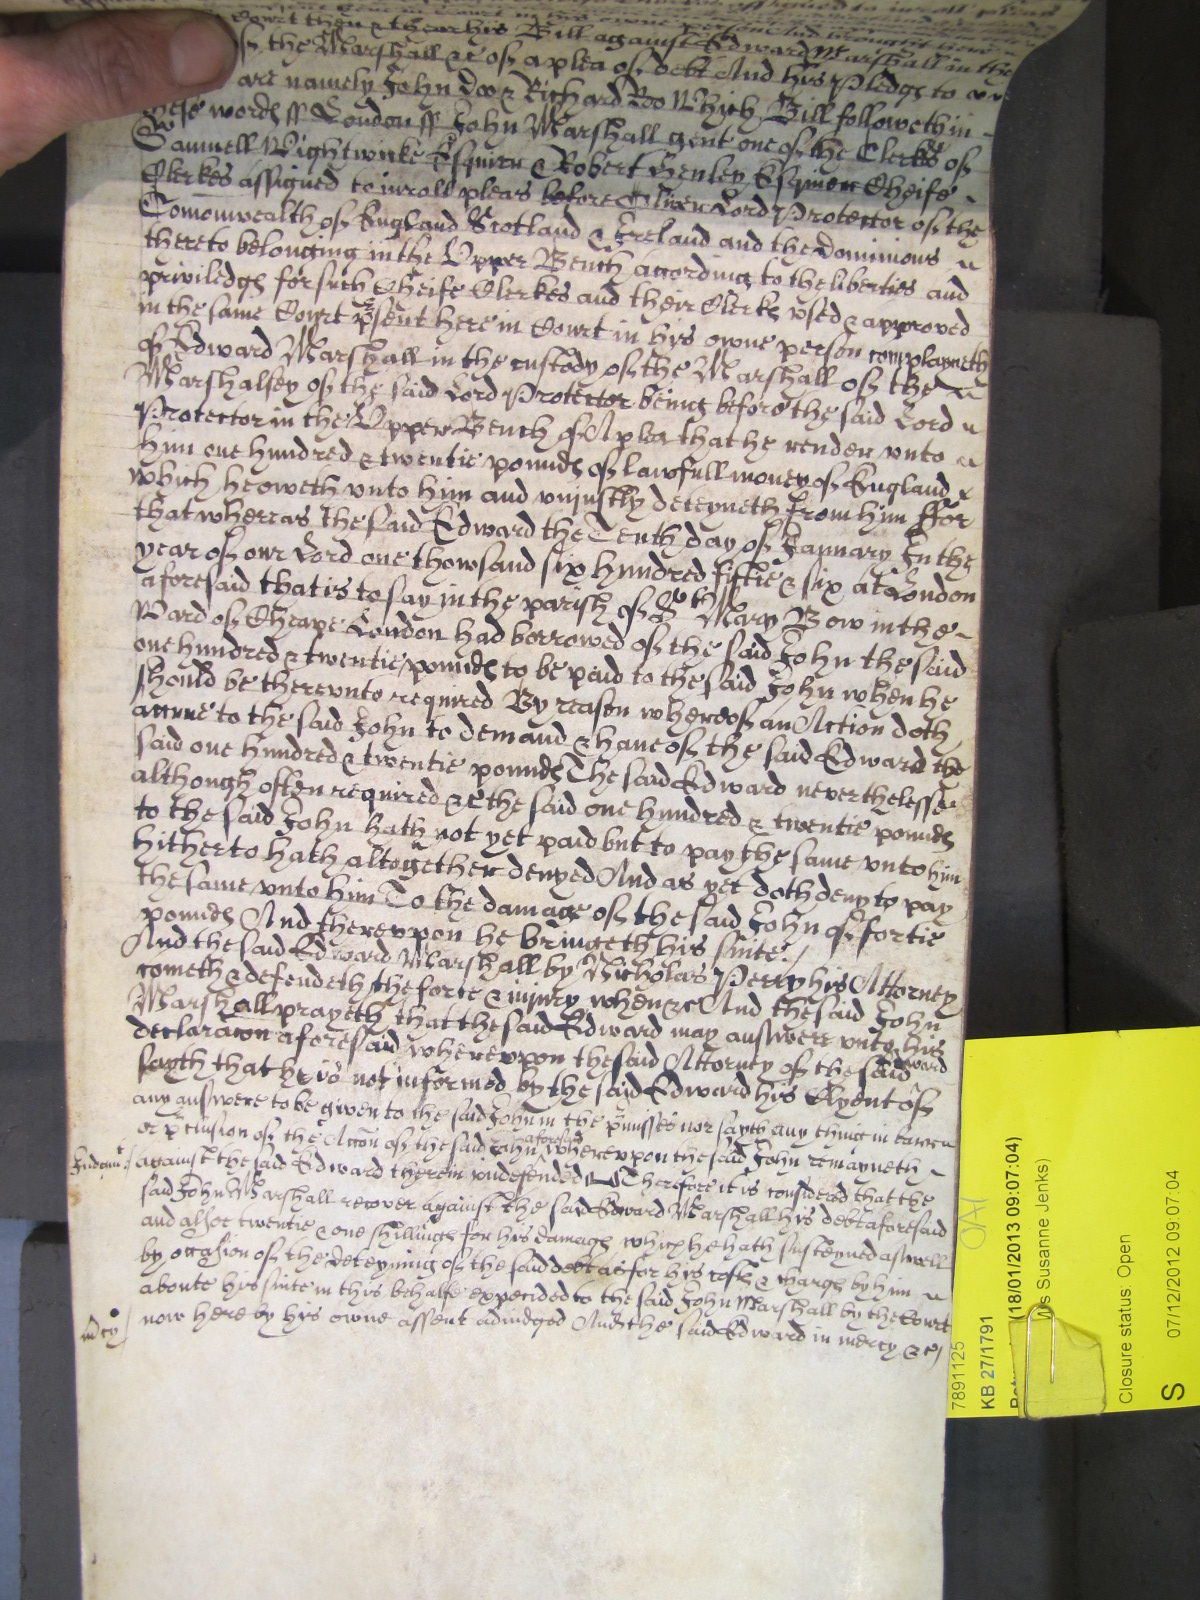 Court then & there his Bill against Edward Marshall in the
of the Marshall &c of a plea of debt And his Pledges to
are namely John Doo & Richard Roo Which Bill followeth in
these words ss London ss John Marshall gent one of the Clerkes of
Samuell Wightwicke Esquier & Robert Henley Esquier Cheife
Clerkes assigned to inroll pleas before Oliver Lord Protector of the
Comonwealth of England Scotland & Ireland and the Dominions
thereto belonging in the Upper Bench according to the liberties and
priviledges for such Cheife Clerkes and their Clerks used & approved
in the same Court p'sent here in Court in his owne person complayneth
of Edward Marshall in the custody of the Marshall of the
Marshalsey of the said Lord Protector being before the said Lord
Protector in the Upper Bench of A plea that he render unto
him one hundred & twentie pounds of lawfull money of England
which he oweth unto him and uniustly deteyneth from him ffor
that whereas the said Edward the Tenth day of January In the
year of our Lord one thowsand six hundred fiftie & six at London
aforesaid that is to say in the parish of St Mary Bow in the
Ward of Cheape London had borrowed of the said John the said
one hundred & twentie pounds to be paid to the said John when he
should be thereunto required By reason whereof an Action doth
accrue to the said John to demand & have of the said Edward the
said one hundred & twentie pounds The said Edward neverthelesse
although often required &c the said one hundred & twentie pounds
to the said John hath not yet paid but to pay the same unto him
hitherto hath altogether denyed And as yet doth deny to pay
the same unto him To the damage of the said John of fortie
pounds And thereupon he bringeth his suite /
And the said Edward Marshall by Nicholas Perry his Attorney
cometh & defendeth the force & iniury when &c And the said John
Marshall prayeth that the said Edward may answere unto his
declaracon aforesaid whereupon the said Attorney of the said Edward
sayth that he is not informed by the said Edward his Clyent of
any answere to be given to the said John in the p'misses nor sayth any thing in barre
or p'clusion of the Accon of the said John aforesaid Whereupon the said John remayneth
Judgmt against the said Edward therein undefended Therefore it is considered that the
said John Marshall recover against the said Edward Marshall his debt aforesaid
and alsoe twentie & one shillings for his damages which he hath susteyned aswell
by occasion of the deteyning of the said debt as for his costs & charges by him
aboute his suite in this behalfe expended to the said John Marshall by the Court
mcy now here by his owne assent adiudged And the said Edward in mercy &c
7891125
KB 27/1791
(18/01/2013 09:07:04)
Ms Susanne Jenks)
Closure status: Open
S 07/12/2012 09:07:04